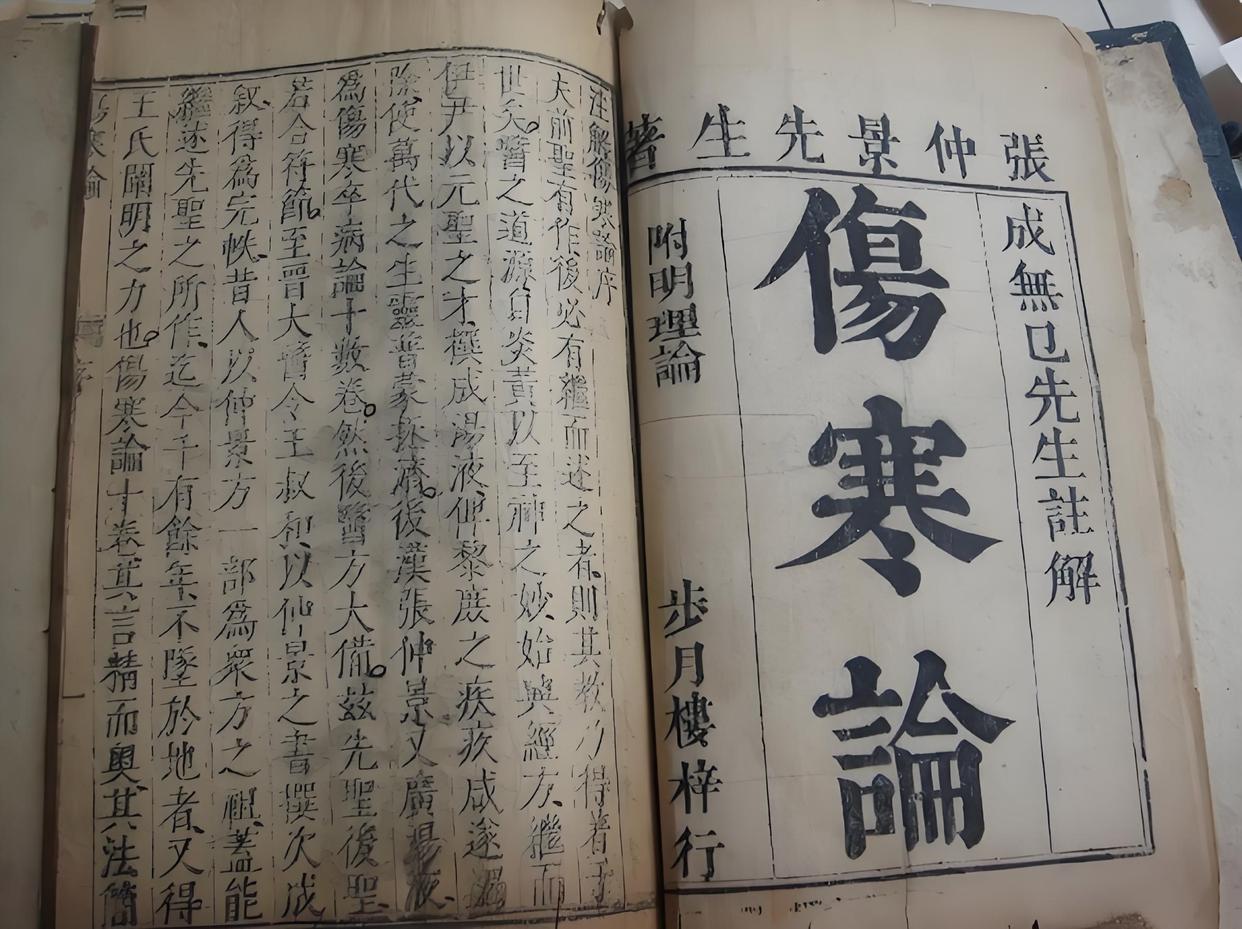 張仲景先生著
成無已先生註解
傷寒論
附明理論
步月樓梓行
注解傷寒論序
夫前聖有作後必有繼而述之者、則其教乃得著于
世矣。醫之道源自炎黃以至神之妙、始興經方、繼而
伊尹以元聖之才、撰成湯液、俾黎庶之疾疚咸遂蠲
除、使萬代之生靈普蒙拯濟。後漢張仲景又廣湯液
爲傷寒卒病論十數卷。然後醫方大備。茲先聖後聖
若合符節。至晉大醫令王叔和以仲景之書撰次成
敘、得爲完帙、昔人以仲景方一部爲衆方之祖、蓋能
繼述先聖之所作、迄今千有餘年、不墜於地者、又得
王氏闡明之力也。傷寒論十卷其言精而奧其法簡